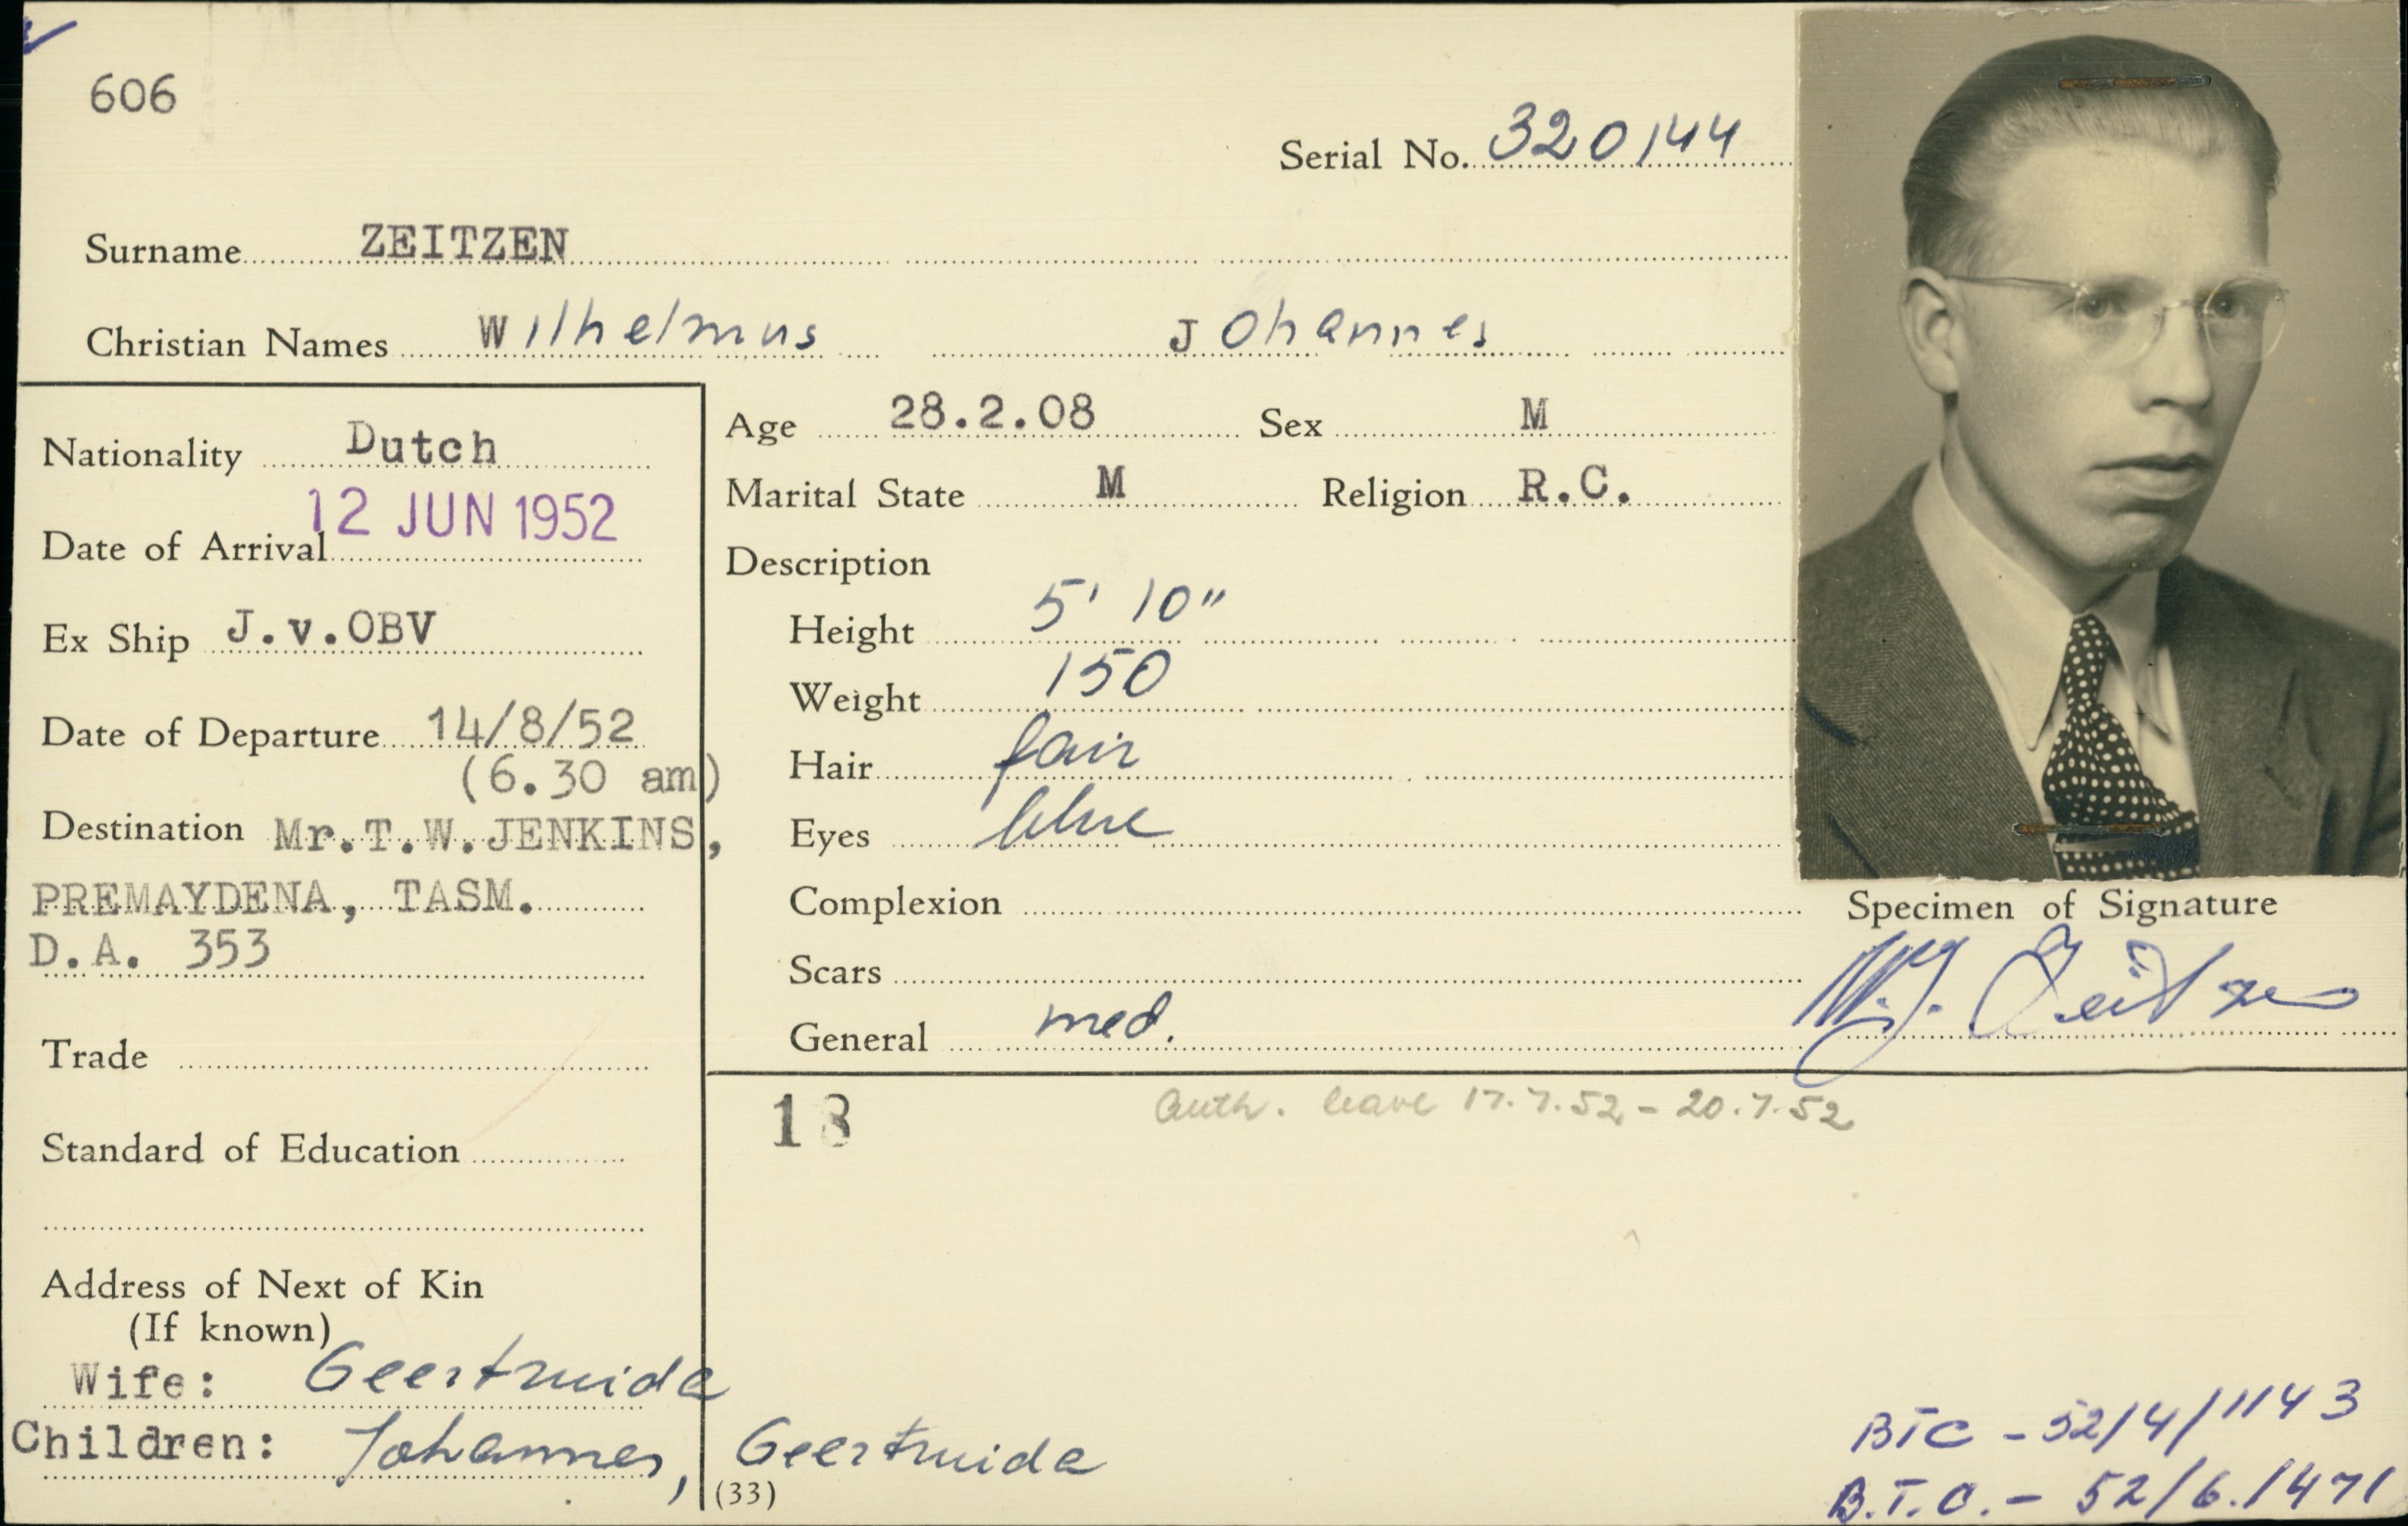 606
Serial No. 320144
Surname ZEITZEN
Christian Names Wilhelmus Johannes
Nationality Dutch
Date of Arrival 12 JUN 1952
Ex Ship J.v.OBV
Date of Departure 14/8/52
(6.30 am)
Destination Mr.T.W.JENKINS,
PREMAYDENA, TASM.
D.A. 353
Trade
Standard of Education
Address of Next of Kin
(If known)
Wife: Geertruida
Children: Johannes, Geertruida
Age 28.2.08 Sex M
Marital State M Religion R.C.
Description
Height 5' 10"
Weight 150
Hair fair
Eyes blue
Complexion
Scars
General med.
Specimen of Signature
W.J. Zeitzen
18
Auth. leave 17.7.52 - 20.7.52
(33)
BTC - 52/4/1143
B.T.C. - 52/6./471